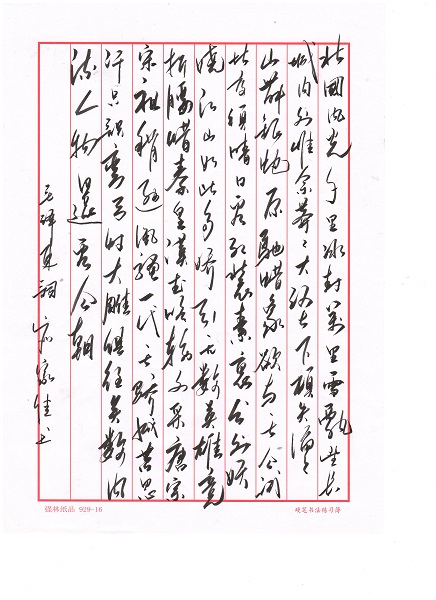 北國风光千里冰封萬里雪飄望长
城内外惟余莽々大河上下頓失滔々
山舞銀蛇原馳蜡象欲与天公試
比高須晴日看红裝素裹分外妖
娆江山如此多娇引无数英雄竞
折腰惜秦皇漢武略輸文采唐宗
宋祖稍逊风骚一代天骄成吉思
汗只識弯弓射大雕俱往矣数风
流人物還看今朝
毛泽東詞 家佳书
硬笔书法练习簿
林纸品 929-16